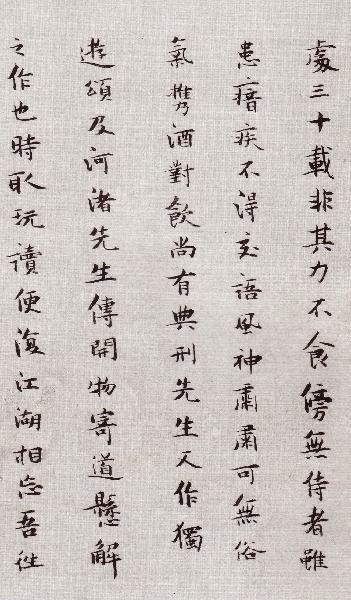 處三十載非其力不食傍無侍者雖
患瘖疾不得交語風神肅肅可無俗
氣攜酒對飲尚有典刑先生又作獨
遊頌及河渚先生傳開物寄道懸解
之作也時取玩讀便復江湖相忘吾往